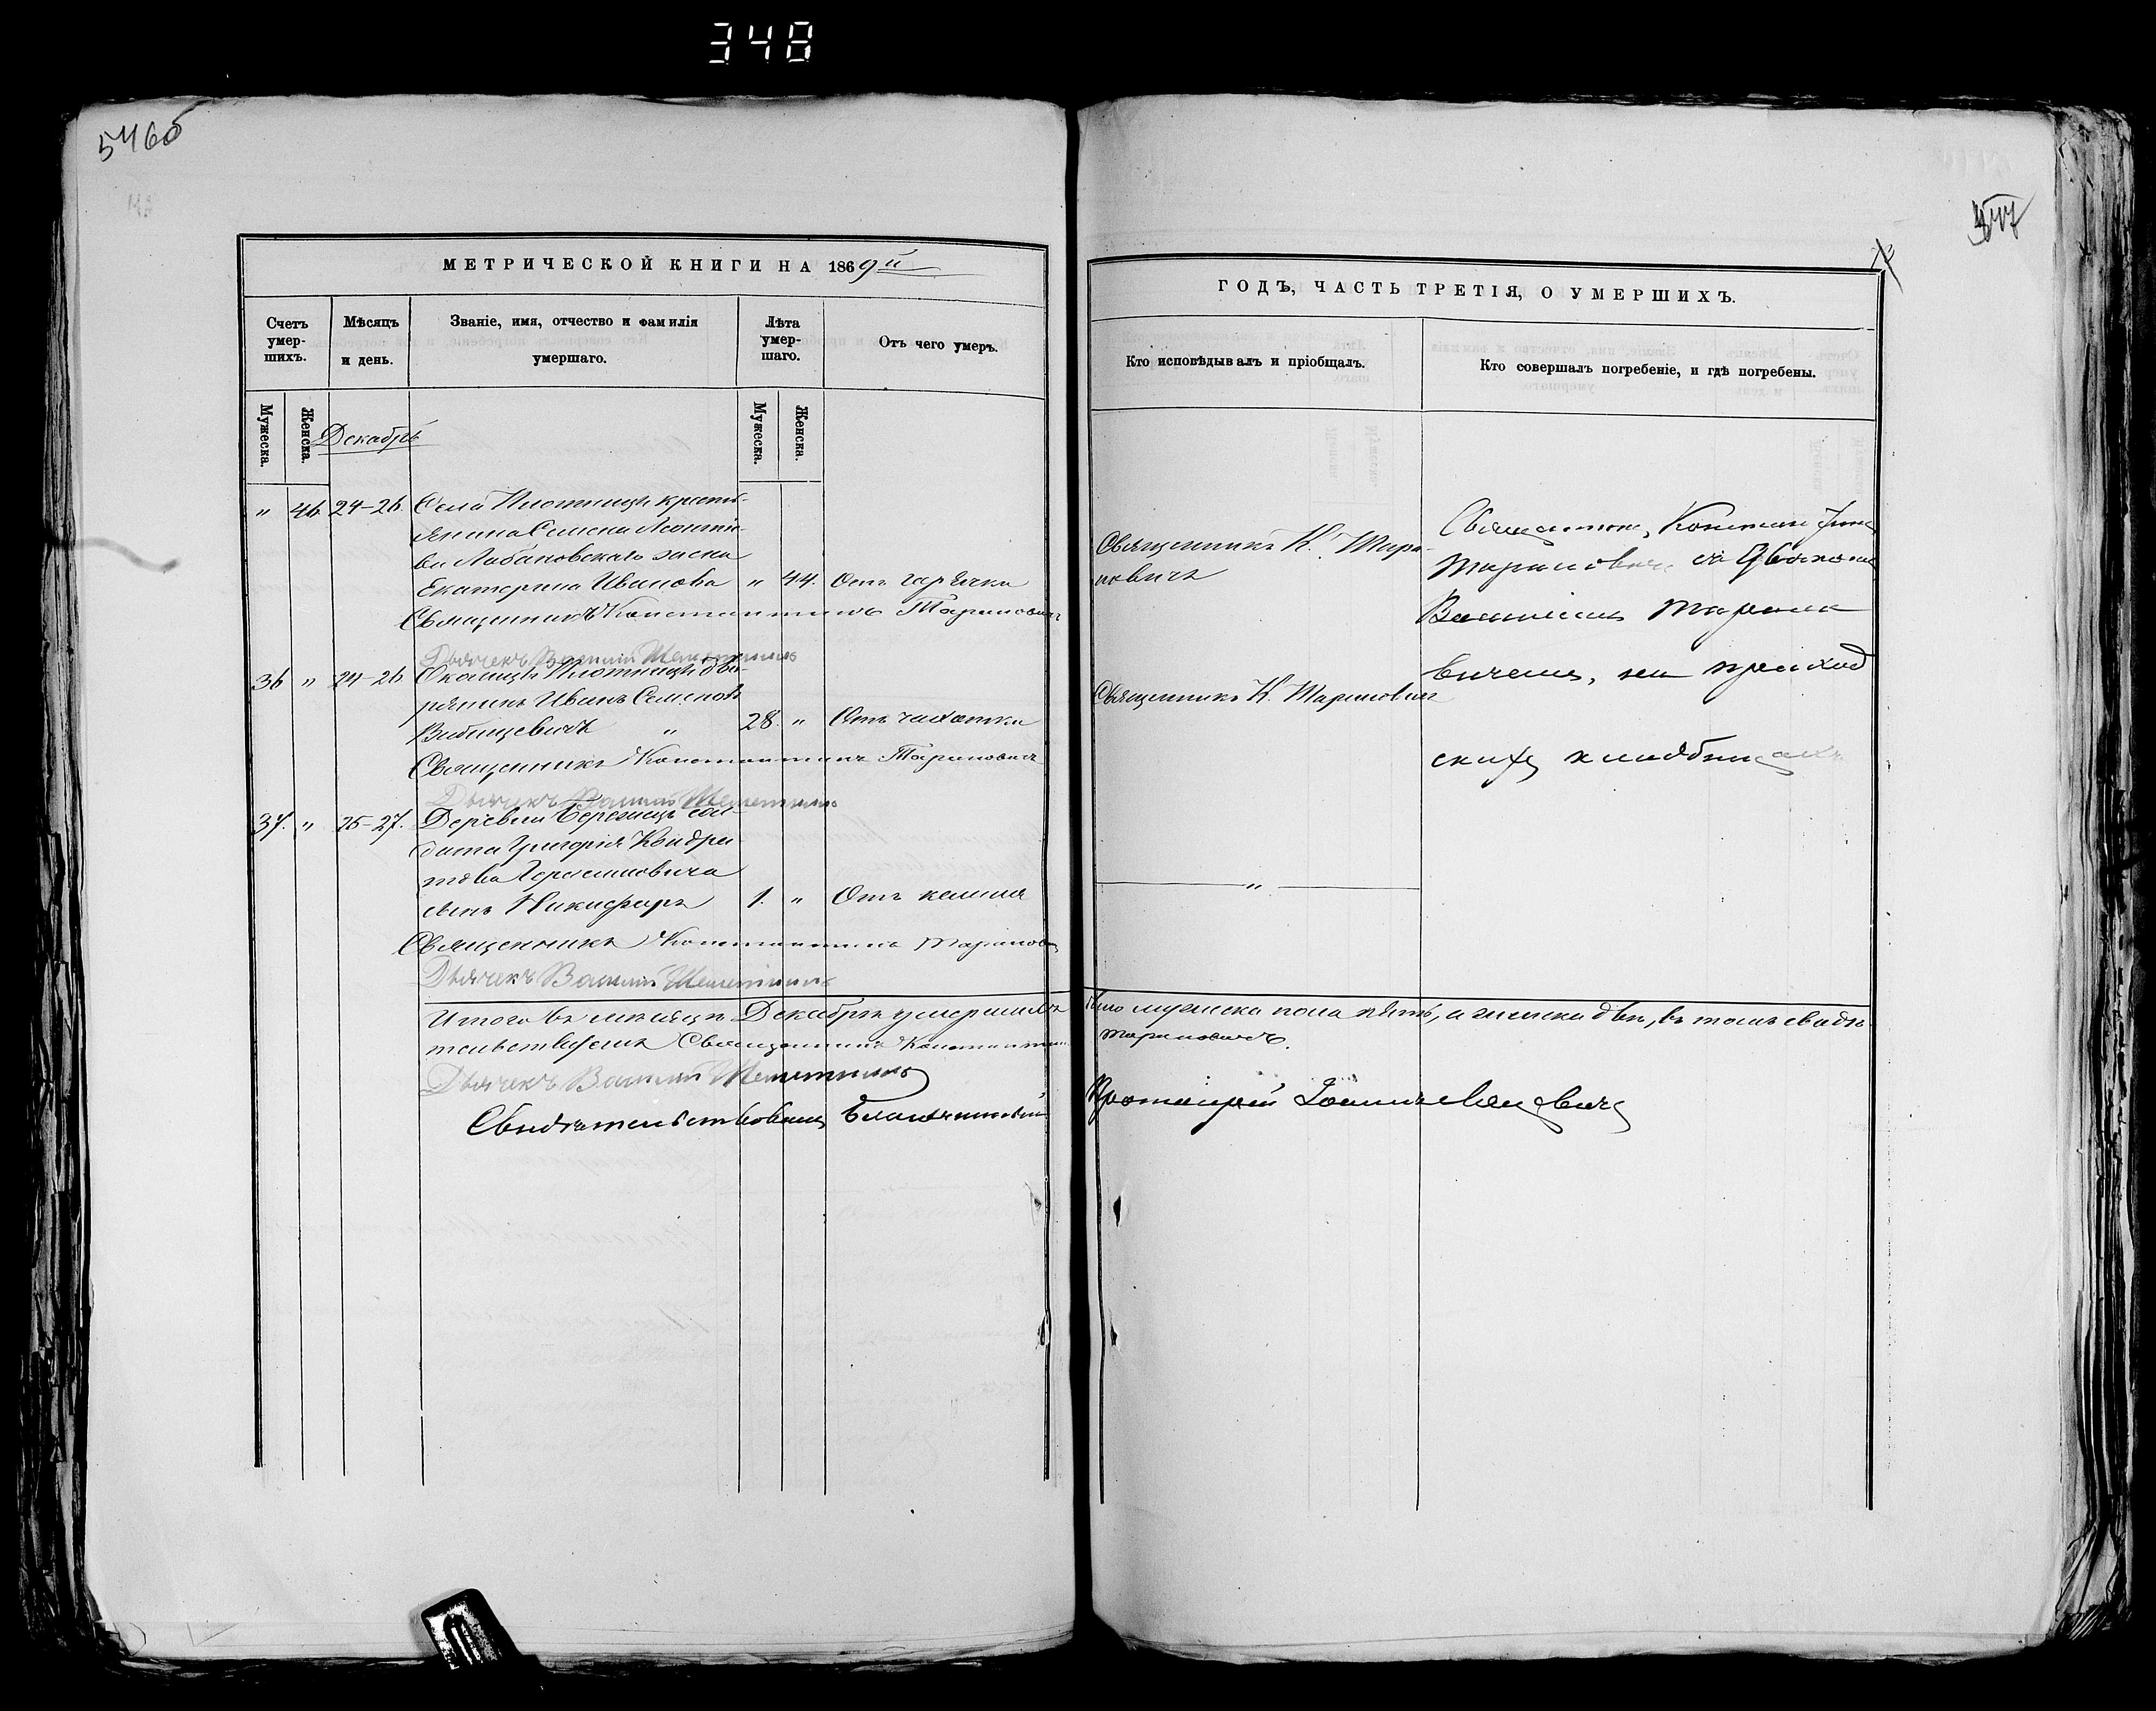 348
546об
547
МЕТРИЧЕСКОЙ КНИГИ НА 1869й
Счетъ умер-шихъ.
Мѣсяцъ и день.
Званіе, имя, отчество и фамилія умершаго.
Лѣта умер-шаго.
Отъ чего умеръ.
Мужеска.
Женска.
Мужеска.
Женска.
Декабрь
" 46. 24-26. Села Плотницы кресть-
янина Семена Леонтье-
ва Лабановскаго жена
Екатерина Иванова " 44. Отъ горячки
Священникъ Константинъ Тарановичъ
Дьячекъ Василій
36 " 24-26. Околицы Плотницы дво-
рянинъ Иванъ Семеновъ
" 28. " Отъ чахотки
Священникъ Константинъ Тарановичъ
Дьячекъ Василій
37. " 25-27. Деревни Бережецъ сол-
дата Григорія Кондра-
тьева Герасимовича
сынъ Никифоръ 1. " Отъ кашля
Священникъ Константинъ Тарановичъ
Дьячекъ Василій
Итого въ мѣсяцѣ Декабрѣ умершихъ
Священникъ Константинъ
Дьячекъ Василій
Свидѣтельствовалъ Благочинный
ГОДЪ, ЧАСТЬ ТРЕТІЯ, О УМЕРШИХЪ.
Кто исповѣдывалъ и пріобщалъ.
Кто совершалъ погребеніе, и гдѣ погребены.
Священникъ К. Тара-
новичъ
Священникъ К. Тарановичъ
"
Священникъ Константинъ
Тарановичъ съ
Василіемъ Тарано
вичемъ, на приход
скихъ кладбищахъ
было мужеска пола пять, а женска двѣ, въ томъ свидѣ
Тарановичъ.
Протоіерей Іоаннъ